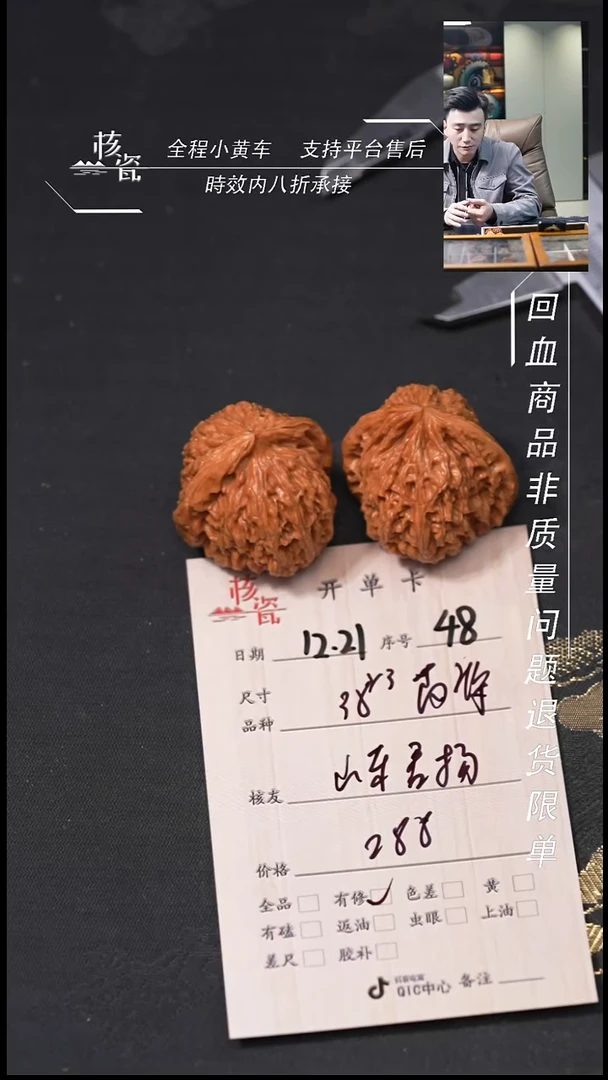 核瓷
全程小黄车 支持平台售后
時效内八折承接
回血商品非质量问题退货限单
核瓷 开单卡
日期 12.21 序号 48
尺寸
品种
核友 山东君扬
价格 288
全品 有修 色差 黄
有磕 返油 虫眼 上油
差尺 胶补
QIC中心 备注